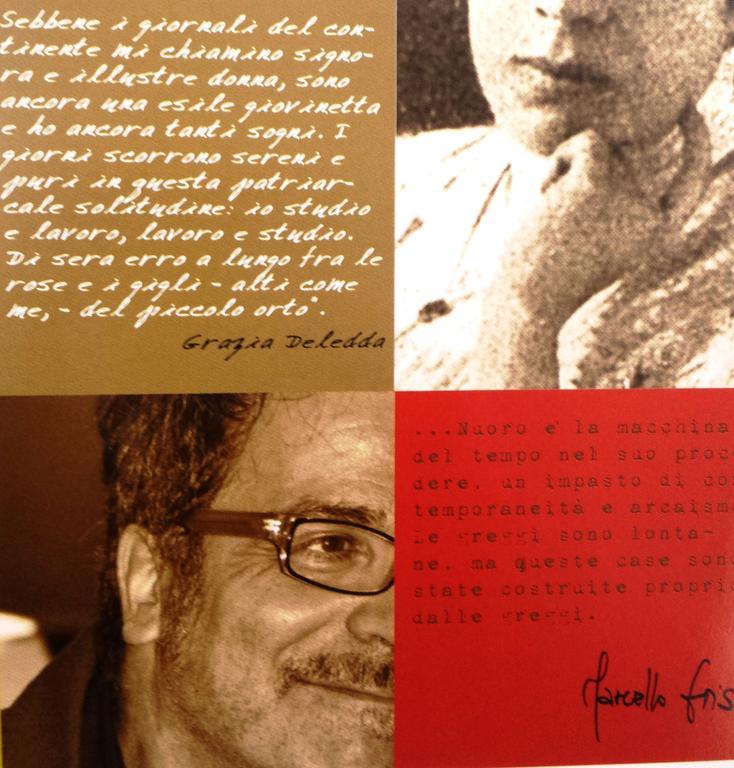 Sebbene i giornali del con-
tinente mi chiamino signo-
ra e illustre donna, sono
ancora una esile giovinetta
e ho ancora tanti sogni. I
giorni scorrono sereni e
puri in questa patriar-
cale solitudine: io studio
e lavoro, lavoro e studio.
Di sera erro a lungo fra le
rose e i gigli - alti come
me, - del piccolo orto".
Grazia Deledda
...Nuoro e' la macchina
del tempo nel suo proc
dere, un impasto di co
temporaneità e arcaism
Le greggi sono lonta-
ne, ma queste case son
state costruite propri
dalle greggi.
Marcello Fois